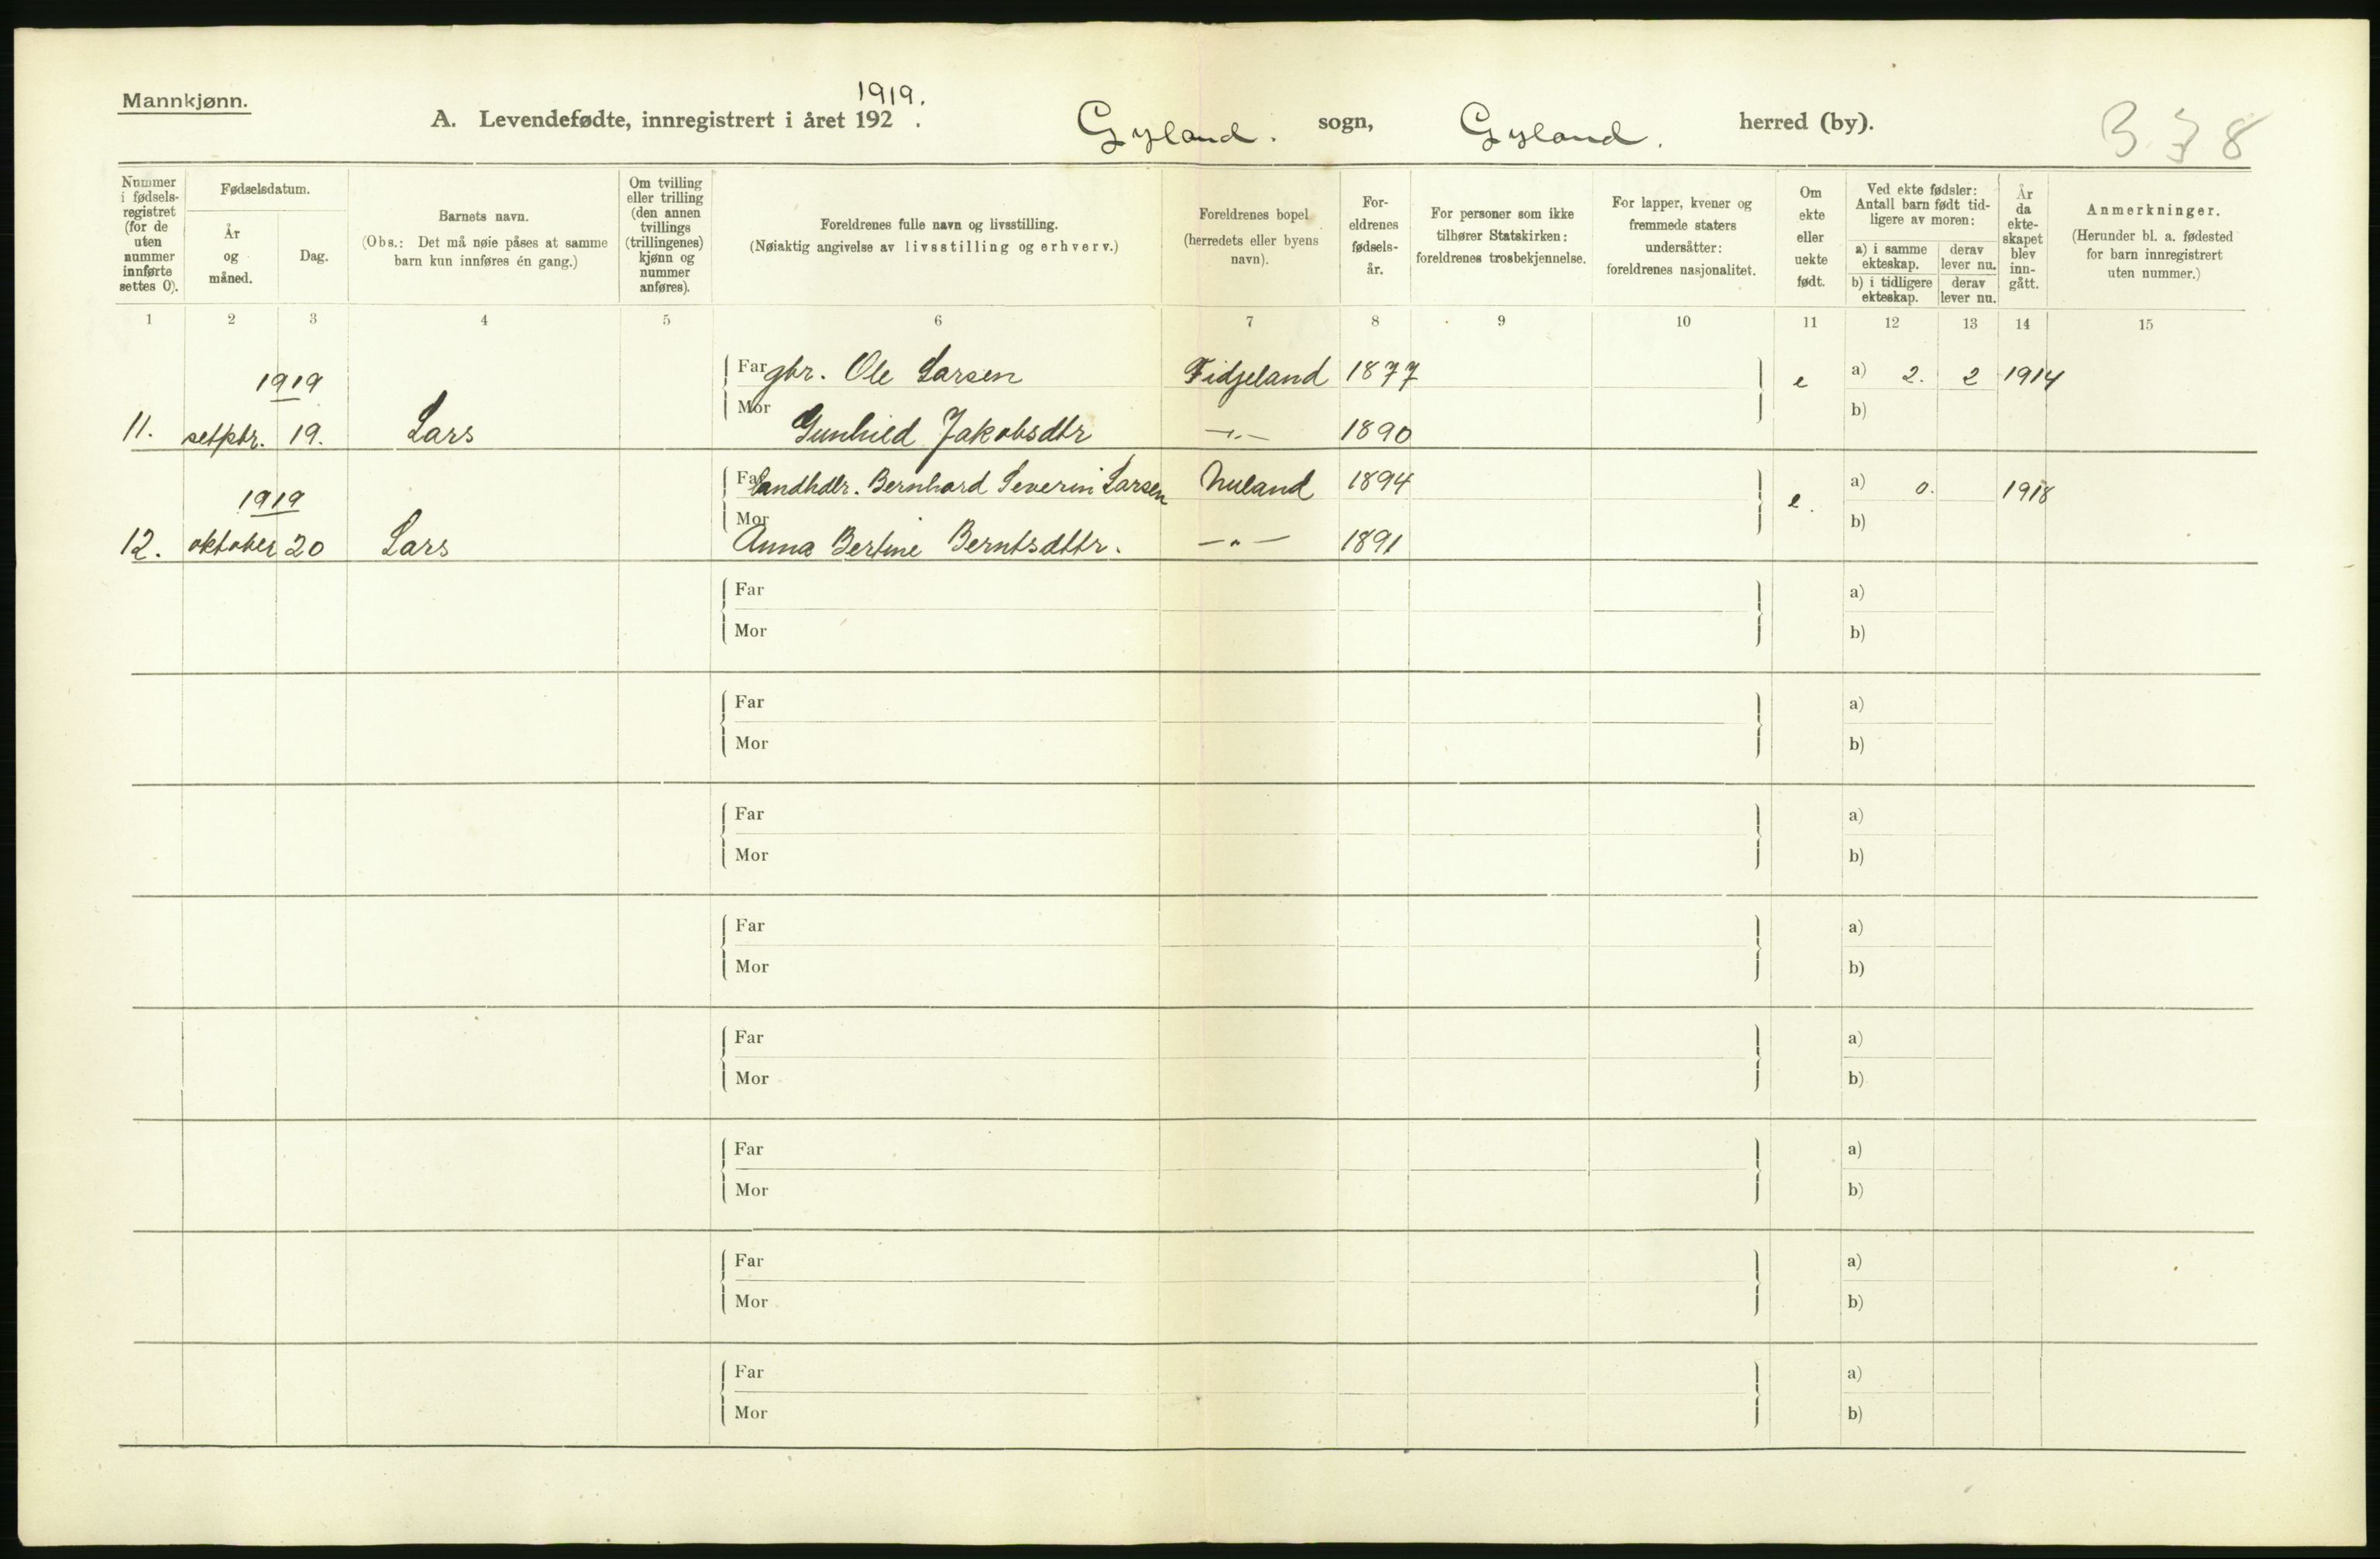 Mannkjønn.
1919.
A. Levendefødte, innregistrert i året 192 . Gyland. sogn, Gyland. herred (by).
338
Nummer i fødsels-registret (for de uten nummer innførte settes 0).
Fødselsdatum.
År og måned.
Dag.
Barnets navn.
(Obs.: Det må nøie påses at samme barn kun innføres én gang.)
Om tvilling eller trilling (den annen tvillings (trillingenes) kjønn og nummer anføres).
Foreldrenes fulle navn og livsstilling.
(Nøiaktig angivelse av livsstilling og erhverv.)
Foreldrenes bopel (herredets eller byens navn).
For-eldrenes fødsels-år.
For personer som ikke tilhører Statskirken: foreldrenes trosbekjennelse.
For lapper, kvener og fremmede staters undersåtter: foreldrenes nasjonalitet.
Om ekte eller uekte født.
Ved ekte fødsler: Antall barn født tid-ligere av moren:
a) i samme ekteskap. derav lever nu.
b) i tidligere ekteskap. derav lever nu.
År da ekte-skapet blev inn-gått.
Anmerkninger.
(Herunder bl. a. fødested for barn innregistrert uten nummer.)
1 2 3 4 5 6 7 8 9 10 11 12 13 14 15
1919 Far gbr. Ole Larsen Fidjeland 1877 e a) 2. 2 1914
11. setptr. 19. Lars Mor Gunhild Jakobsdtr —"— 1890 b)
1919 Far Landhdlr. Bernhard Severin Larsen Nuland 1894 e. a) 0. 1918
12. oktober 20 Lars Mor Anna Bertine Berntsdttr. —"— 1891 b)
Far a)
Mor b)
Far a)
Mor b)
Far a)
Mor b)
Far a)
Mor b)
Far a)
Mor b)
Far a)
Mor b)
Far a)
Mor b)
Far a)
Mor b)